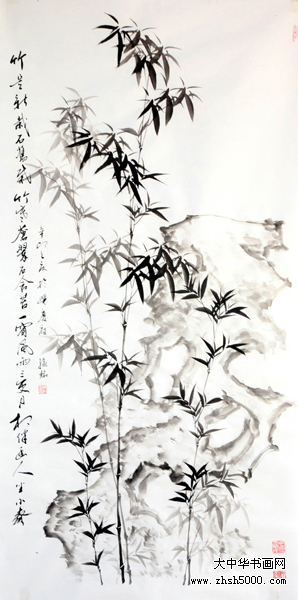 竹是新栽石舊栽竹含蒼翠石含苔一窗風雨三更月相伴幽人坐小齋
辛卯之
大中华书画网
www.zhsh5000.com